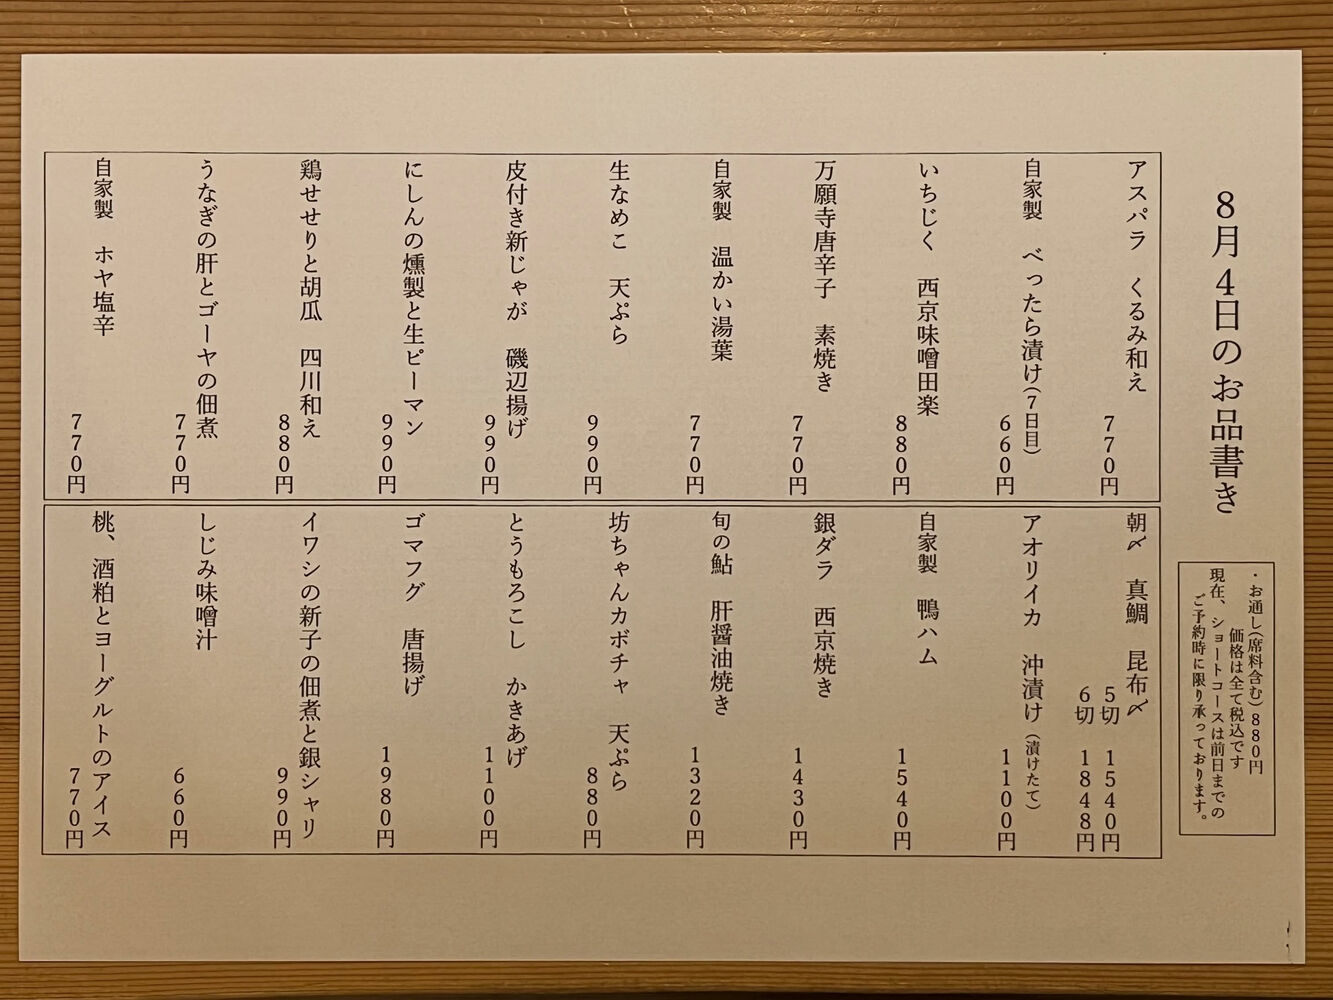 8月4日のお品書き
・お通し(席料含む)880円
価格は全て税込です
現在、ショートコースは前日までの
ご予約時に限り承っております。
アスパラ　くるみ和え
770円
自家製　べったら漬け(7日目)
660円
いちじく　西京味噌田楽
880円
万願寺唐辛子　素焼き
770円
自家製　温かい湯葉
770円
生なめこ　天ぷら
990円
皮付き新じゃが　磯辺揚げ
990円
にしんの燻製と生ピーマン
990円
鶏せせりと胡瓜　四川和え
880円
うなぎの肝とゴーヤの佃煮
770円
自家製　ホヤ塩辛
770円
朝〆　真鯛　昆布〆
5切　1540円
6切　1848円
アオリイカ　沖漬け(漬けたて)
1100円
自家製　鴨ハム
1540円
銀ダラ　西京焼き
1430円
旬の鮎　肝醤油焼き
1320円
坊ちゃんカボチャ　天ぷら
880円
とうもろこし　かきあげ
1100円
ゴマフグ　唐揚げ
1980円
イワシの新子の佃煮と銀シャリ
990円
しじみ味噌汁
660円
桃、酒粕とヨーグルトのアイス
770円